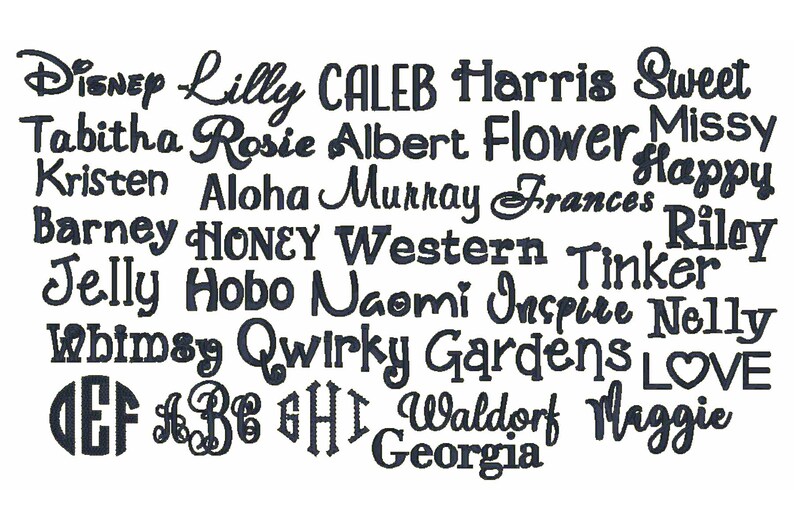 Disney Lilly CALEB Harris Sweet
Tabitha Rosie Albert Flower Missy
Kristen Aloha Murray Frances Happy
Barney HONEY Western Riley
Jelly Hobo Naomi Inspire Tinker
Whimsy Qwirky Gardens Nelly
DEF ABC GHI Waldorf Maggie LOVE
Georgia